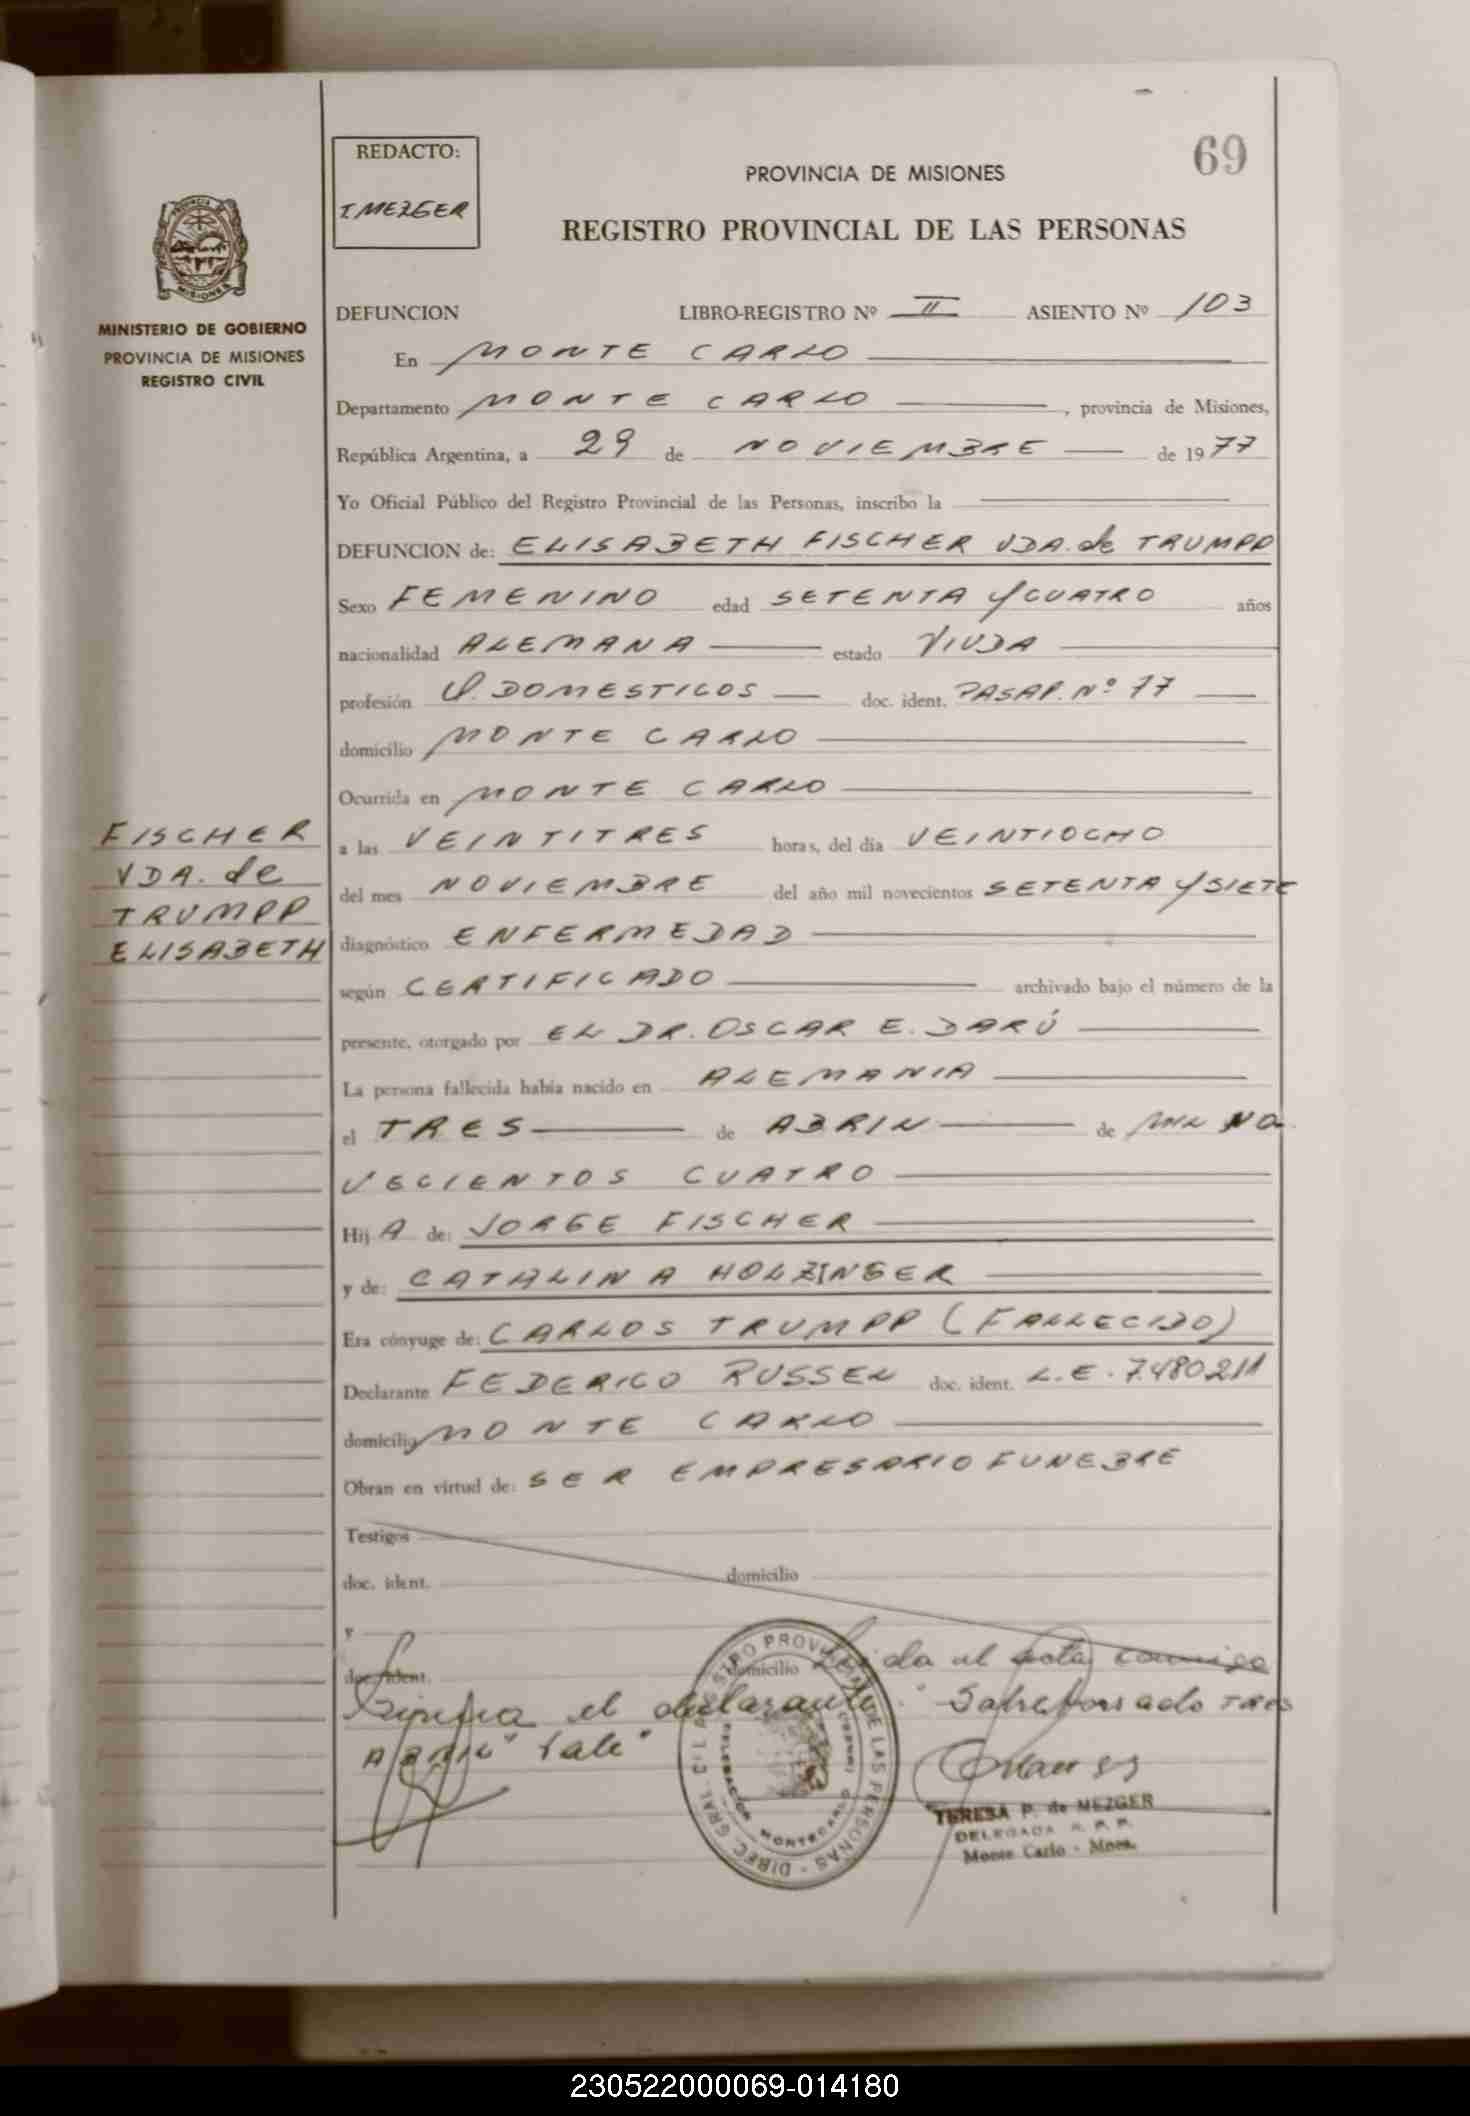 69
REDACTO:
T. MEZGER
PROVINCIA DE MISIONES
REGISTRO PROVINCIAL DE LAS PERSONAS
PROVINCIA DE
MISIONES
MINISTERIO DE GOBIERNO
PROVINCIA DE MISIONES
REGISTRO CIVIL
DEFUNCION LIBRO-REGISTRO Nº II ASIENTO Nº 103
En MONTE CARLO
Departamento MONTE CARLO, provincia de Misiones,
República Argentina, a 29 de NOVIEMBRE de 1977
Yo Oficial Público del Registro Provincial de las Personas, inscribo la
DEFUNCION de: ELISABETH FISCHER VDA. de TRUMPP
Sexo FEMENINO edad SETENTA Y CUATRO años
nacionalidad ALEMANA estado VIUDA
profesión Q. DOMESTICOS doc. ident. PASAP. Nº 77
domicilio MONTE CARLO
Ocurrida en MONTE CARLO
a las VEINTITRES horas, del día VEINTIOCHO
del mes NOVIEMBRE del año mil novecientos SETENTA Y SIETE
diagnóstico ENFERMEDAD
según CERTIFICADO archivado bajo el número de la
presente, otorgado por EL DR. OSCAR E. DARÚ
La persona fallecida había nacido en ALEMANIA
el TRES de ABRIL de MIL NO
VECIENTOS CUATRO
Hij A de: JORGE FISCHER
y de: CATALINA HOLZINGER
Era cónyuge de: CARLOS TRUMPP (FALLECIDO)
Declarante FEDERICO RUSSEL doc. ident. L.E. 7.480.211
domicilio MONTE CARLO
Obran en virtud de: SER EMPRESARIO FUNEBRE
Testigos
doc. ident. domicilio
y
doc. ident. domicilio Leída el acta conmigo
firma el declarante. "Sobreborrado TRES
ABRIL" Vale"
FISCHER
VDA. de
TRUMPP
ELISABETH
DIREC. GRAL. DEL REGISTRO PROVINCIAL DE LAS PERSONAS
DELEGACION MONTECARLO
TERESA P. de MEZGER
DELEGADA R. P. P.
Monte Carlo - Mnes.
230522000069-014180